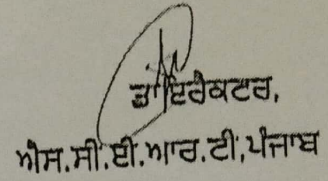 ਡਾਇਰੈਕਟਰ,
ਐਸ.ਸੀ.ਈ.ਆਰ.ਟੀ,ਪੰਜਾਬ